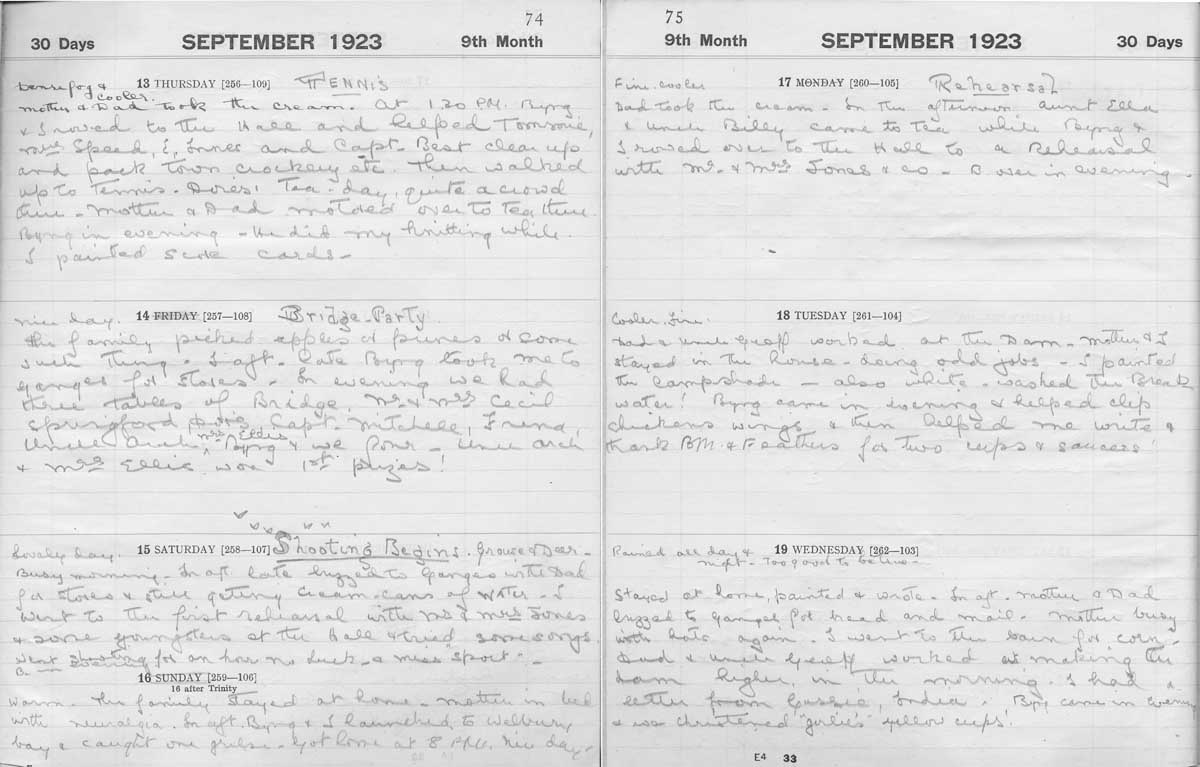 74
30 Days SEPTEMBER 1923 9th Month
dense fog &
cooler. 13 THURSDAY [256—109] TENNIS
mother & Dad took the cream. At 1.30 P.M. Byng
& I rowed to the Hall and helped Tomsone,
mrs Speed, E. Innes and Capt. Best clear up
and pack town crockery etc. Then walked
up to Tennis. Dores' Tea-day, quite a crowd
there. Mother & Dad motored over to tea there.
Byng in evening - He did my knitting while
I painted score cards-
nice day. 14 FRIDAY [257—108] Bridge-Party
The family picked apples & prunes & some
such thing. I aft. late Byng took me to
ganges for stores. In evening we had
three tables of Bridge, Mr & Mrs Cecil
Springford, Capt. Mitchell, Frend,
Uncle Arch, Mrs Ellis, Byng & we four - Uncle Arch
& Mrs Ellis won 1st prizes!
lovely day. 15 SATURDAY [258—107] Shooting Begins. Grouse & Deer-
Busy morning. In aft. late buzzed to Ganges with Dad
for stores & still getting cream-cans of water. I
went to the first rehearsal with mr & mrs Jones
& some youngsters at the Hall & tried some songs
went shooting for an hour no luck - a miss "sport"-
B. in evening
16 SUNDAY [259—106]
16 after Trinity
Warm. The family stayed at home. Mother in bed
with neuralgia. In aft Byng & I launched to Welbury
bay & caught one grilse. Got home at 8 P.M. Nice day-
75
9th Month SEPTEMBER 1923 30 Days
Fine. cooler 17 MONDAY [260—105] Rehearsal
Dad took the cream. In the afternoon aunt Ella
& uncle Billy came to tea while Byng &
I rowed over to the Hall to a Rehearsal
with Mr. & Mrs Jones & co - B over in evening.
Cooler. Fine. 18 TUESDAY [261—104]
Dad & uncle Geoff worked at the Dam - Mother & I
stayed in the house doing odd jobs - I painted
the lampshade - also white-washed the Break
water! Byng came in evening & helped clip
chickens wings & then helped me write &
thank B.M. & Feathers for two cups & saucers!
Rained all day & 19 WEDNESDAY [262—103]
night - Too good to be true-
Stayed at home, painted & wrote. In aft. mother & Dad
buzzed to ganges for head and mail. Mother busy
with hats again. I went to the barn for corn.
Dad & uncle Geoff worked at making the
dam higher in the morning. I had a
letter from Gussie, India. Byng came in evening
& we christened 'girlie's' yellow cups!
E4 33